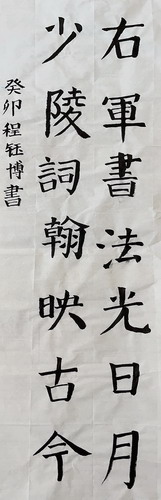 右軍書法光日月
少陵詞翰映古今
癸卯程鈺博書